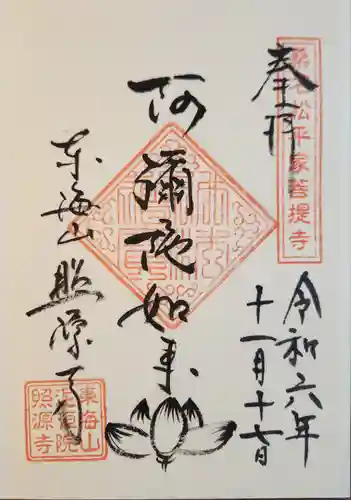 奉拝
桑名松平家菩提寺
令和六年
十一月十七日
阿彌陀如来
東海山照源寺
東海山
泥洹院
照源寺